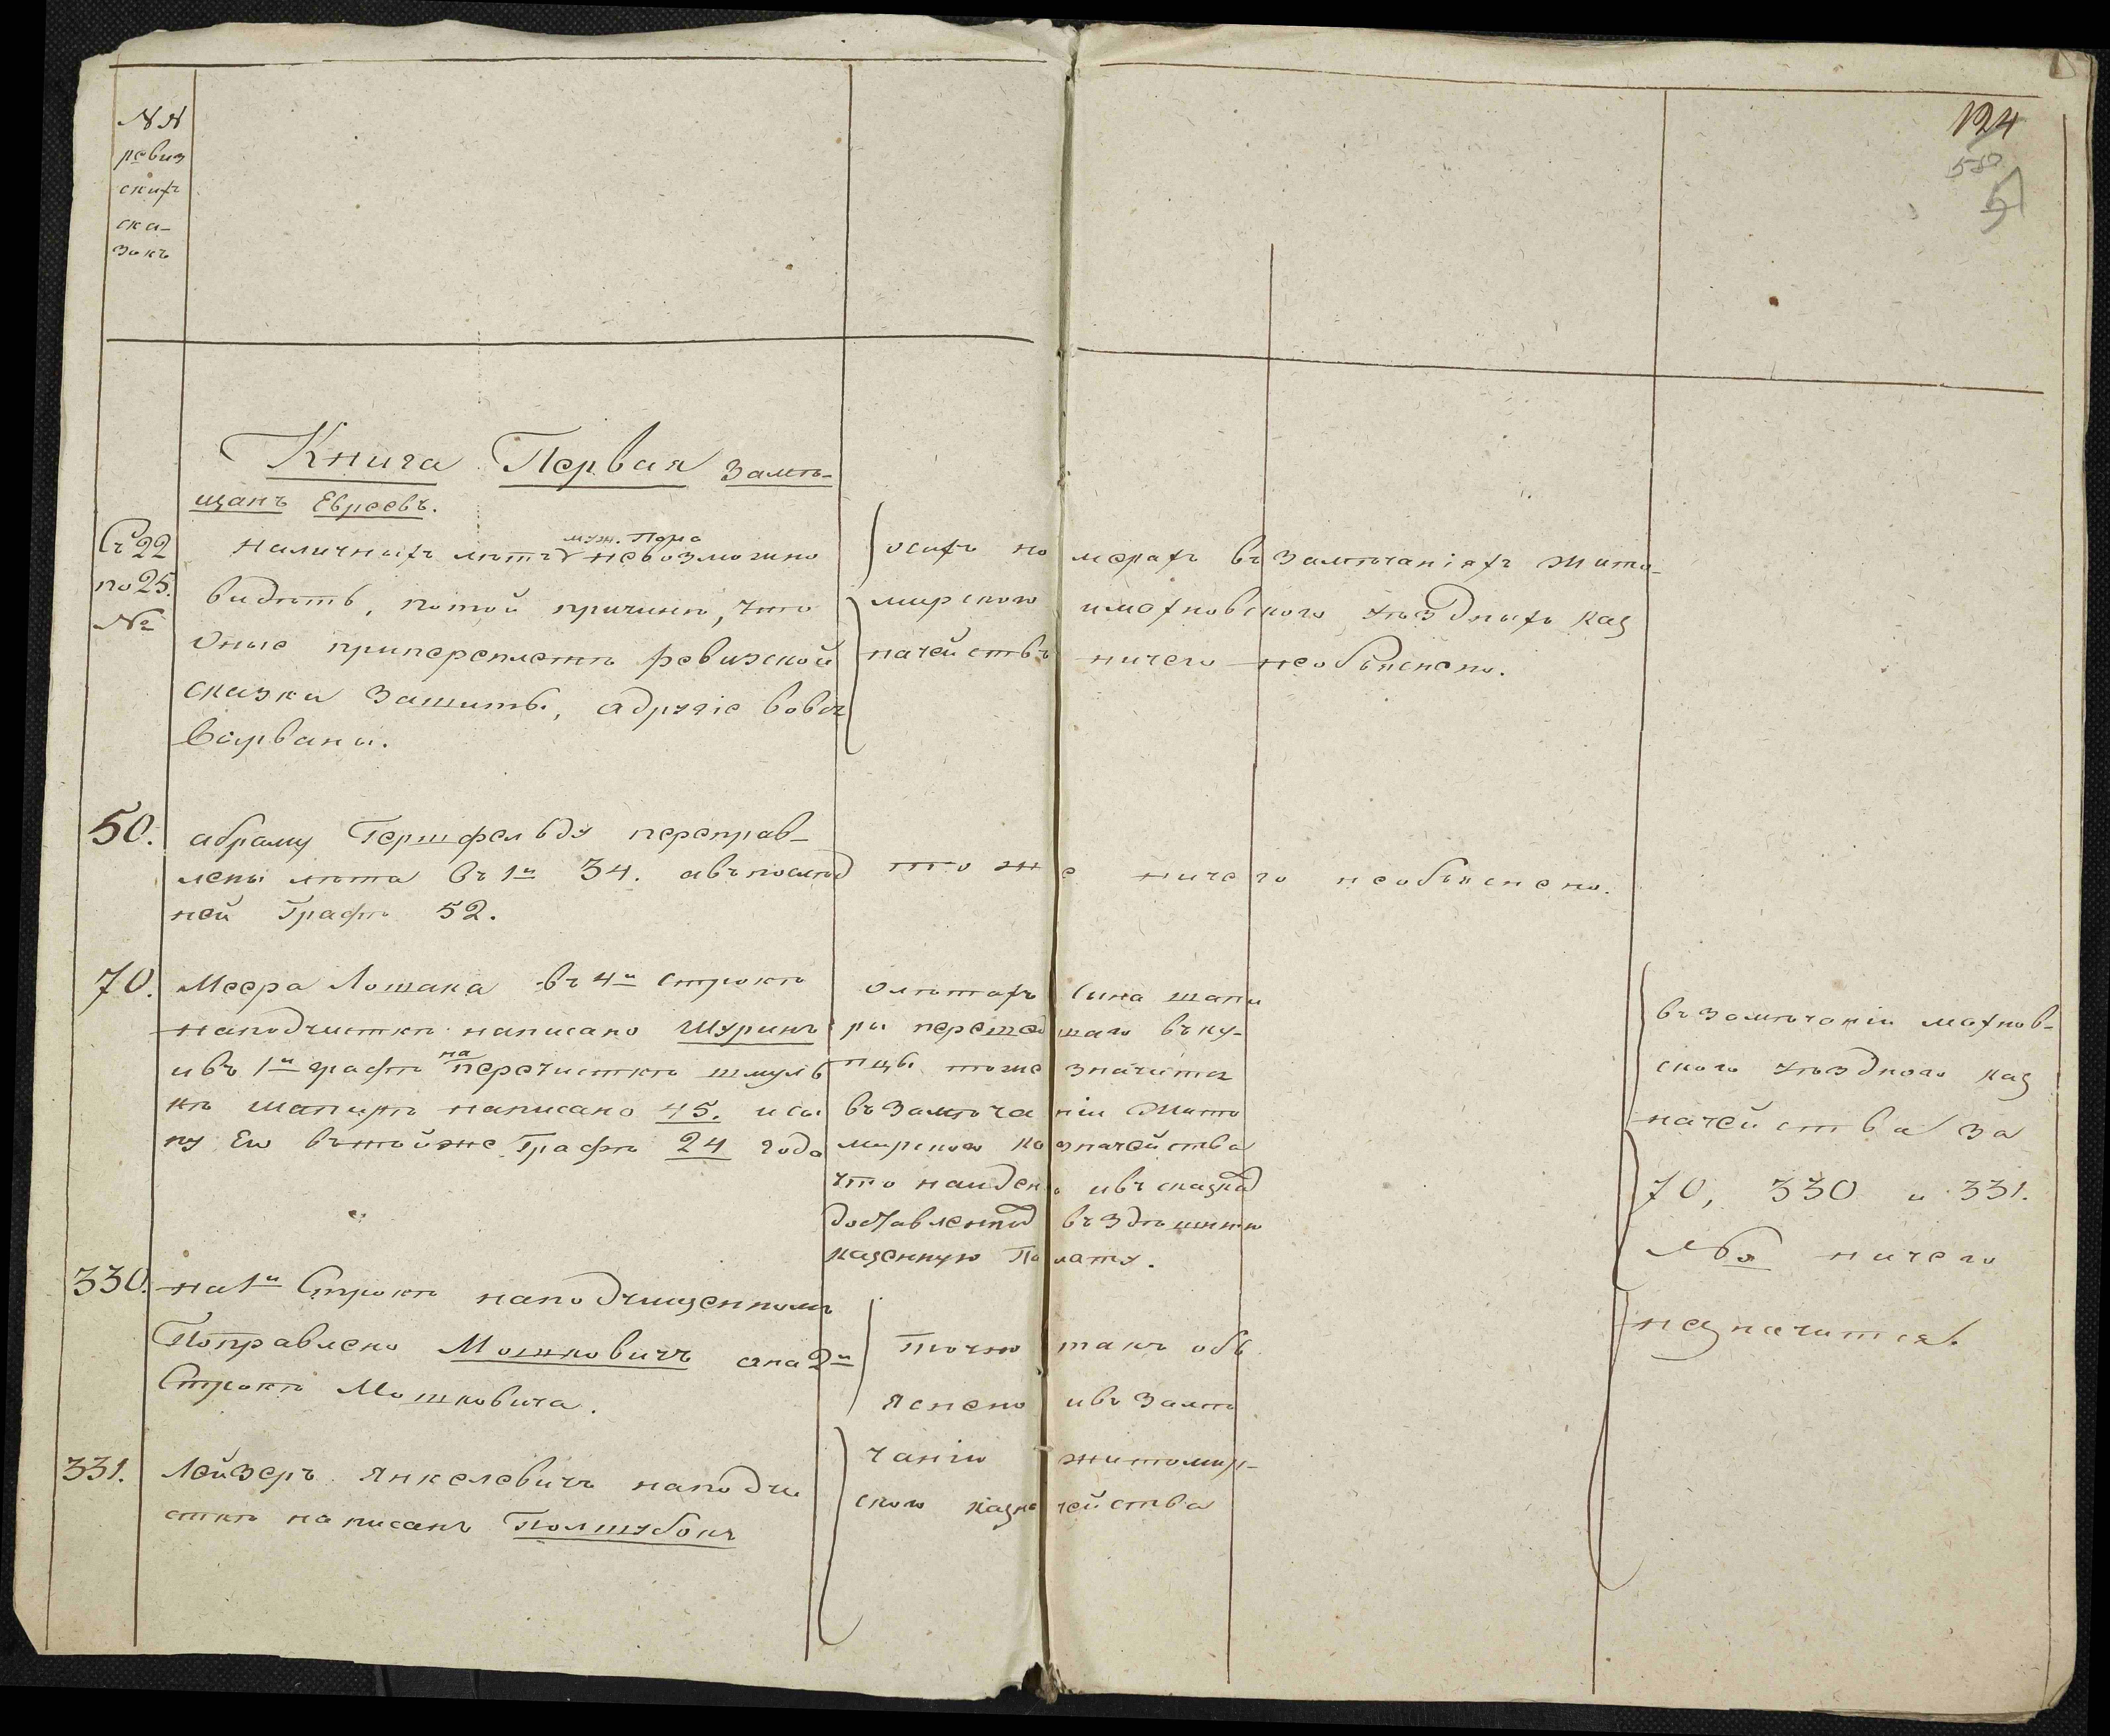 124
580
№№
ревиз
скихъ
ска-
зокъ
Книга Первая замѣ-
щанъ Евреевъ.
Съ 22
по 25.
№
наличныхъ лѣтъ муж. Пола невозможно
видѣть, потой причинѣ, что
Оные припереплетѣ ревизской
сказки Зашиты, адругіе вовсѣ
Вырваны.
осихъ номерахъ въ замѣчаніяхъ Жито-
мирского имахновского уѣздныхъ каз
начействъ ничего необъяснено.
50.
абраму Гершфельду переправ-
лены лѣта въ 1й 34. авъпослѣд
ней Графѣ 52.
тоже ничего необъяснено.
70.
Меера Лошака въ 4й строкѣ
наподчисткѣ написано Шуринъ
ивъ 1й графѣ на перечисткѣ шмуль
кѣ шапирѣ написано 45. исы
ну Его вътойже Графѣ 24 года
Олѣтахъ Сына шапи
ры перешедшаго въку-
пцы тоже значится
въ Замѣчаніи Жито
мирского казначейства
что найдено ивъ сказкѣ
доставленной въздѣшнюю
казенную Палату.
въ замѣчаніи махнов-
ского уѣздного каз
начейства за
70, 330 и 331.
№ ничего
незначится.
330.
на 1й Строкѣ наподчищенномъ
Поправлено Мошковичъ ана 2й
Строкѣ Мошковича.
331.
Лейзеръ Янкелевичъ наподчи
сткѣ написанъ Полшубокъ
точно такъ объ
яснено ивъ Замѣ
чаніи житомир-
ского казначейства